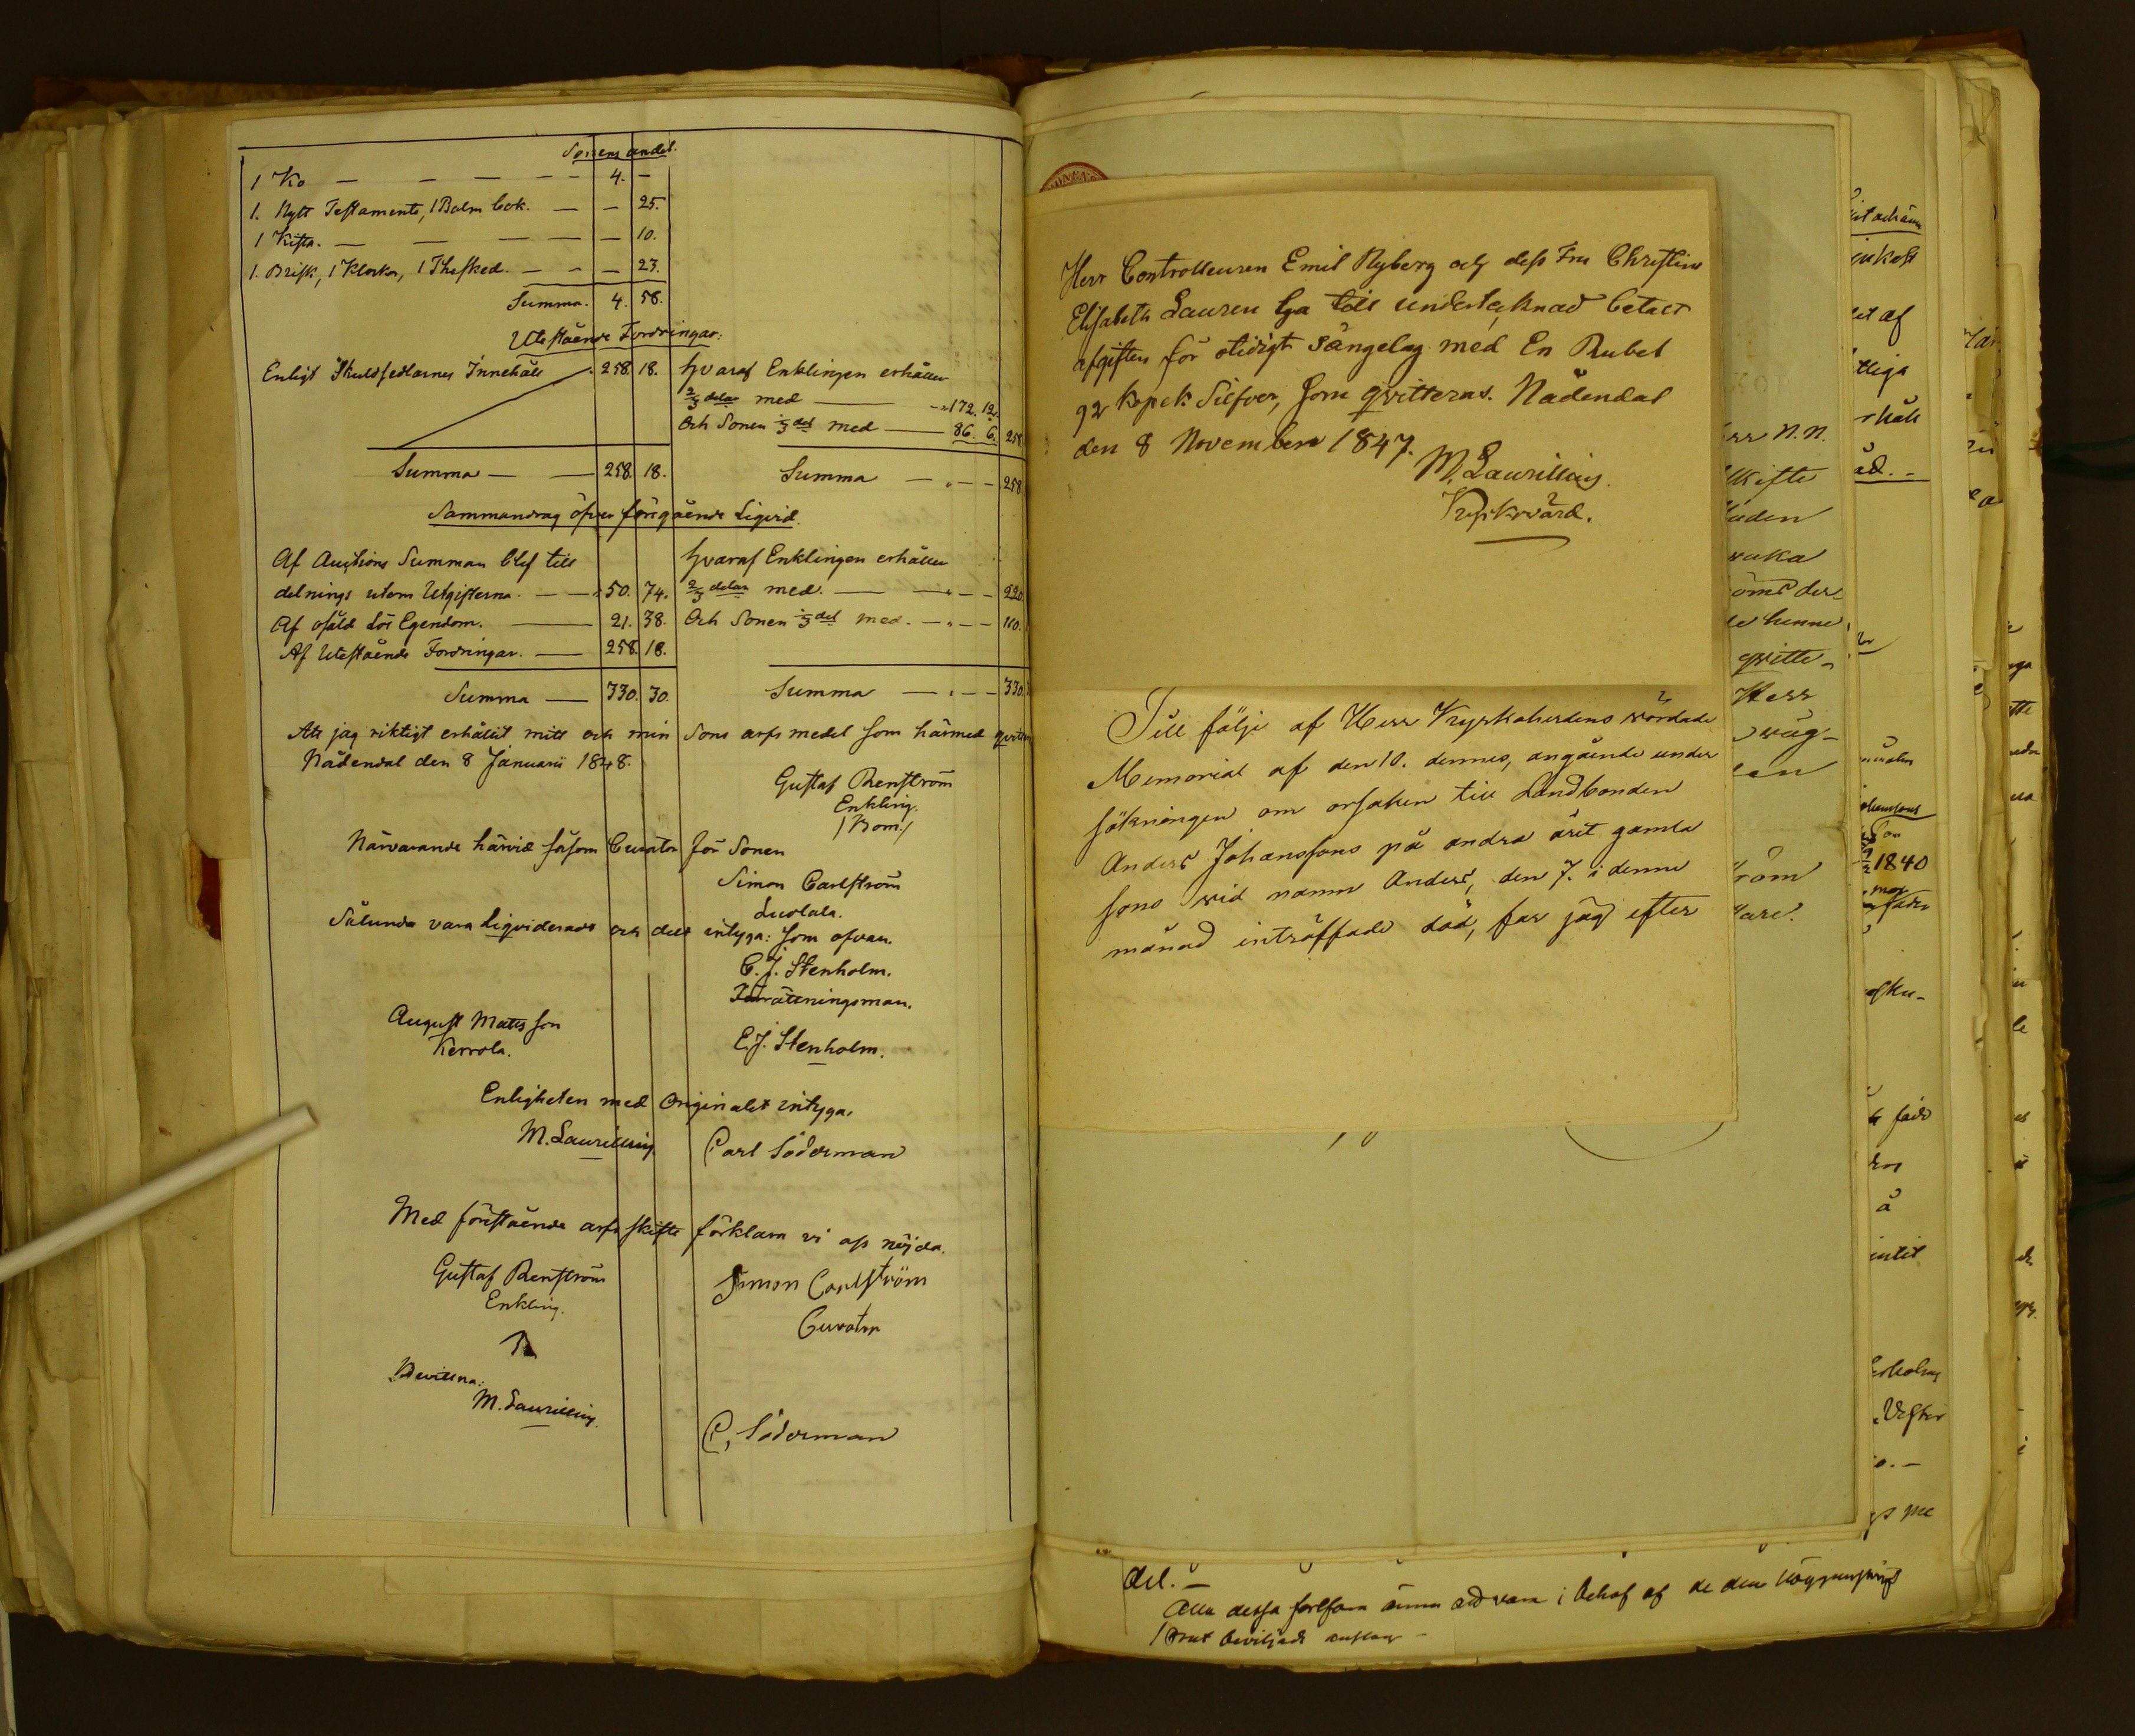 Sonens andel.
1 Ko — — — — — 4. —
1. Nytt Testamente, 1 Psalm bok. — — 25.
1 Kista. — — — — — 10.
1. Brisk, 1 Klocka, 1 Thesked. — — — 23.
Summa. 4. 58.
Utestående Fordringar:
Enligt Skuldsedlarnes Innehåll 258. 18.
Hvaraf Enklingen erhåller
2/3 delar med — 172. 12.
Och Sonen 1/3 del med — 86. 6. 258
Summa — — 258. 18. Summa — „ — — 258
Sammandrag öfver föregående Liqvid.
Af Auctions Summan blef till
delnings utom Utgifterna. — — 50. 74.
Af osåld Lös Egendom. — 21. 38.
Af Utestående Fordringar. — 258. 18.
Hvaraf Enklingen erhåller
2/3 delar med. — — „ — — 220.
Och Sonen 1/3 del med. — „ — — 110.
Summa — 330. 30. Summa — „ — — 330.
Att jag riktigt erhållit mitt och min Sons arfs medel som härmed qvitteras
Nådendal den 8 Januarii 1848.
Gustaf Renström
Enkling.
/Bom./
Närvarande härvid såsom Curator för Sonen
Simon Carlström
Luolala.
Sålunda vara Liqvideradt och delt intyga: Som ofvan.
C. J. Stenholm.
Förrättningsman.
August Matts son
Kerrola.
E. J. Stenholm.
Enligheten med Originalet intyga,
M. Laurellius Carl Söderman
Med förestående arfs skifte förklara vi oss nöjda.
Gustaf Renström
Enkling.
Simon Carlström
Curator
Bevittna:
M. Laurellius.
C, Söderman
Herr Controlleuren Emil Nyberg och dess Fru Christina
Elisabeth Lauren ha till undertecknad betalt
afgiften för otidigt Sängelag med En Rubel
92 kopek Silfver, som qvitteras. Nådendal
den 8 November 1847.
M. Laurellius.
Kyrkovärd.
Till följe af Herr Kyrkoherdens vördade
Memorial af den 10. dennes, angående under
sökningen om orsaken till Landbonden
Anders Johanssons på andra året gamla
sons vid namn Anders, den 7. i denne
månad inträffade död, far jag efter
rr N.N.
skifte
uden
wuka
der-
le henne,
qvitte-
Herr
wåg-
röm
1840
del. —
Alla dessa